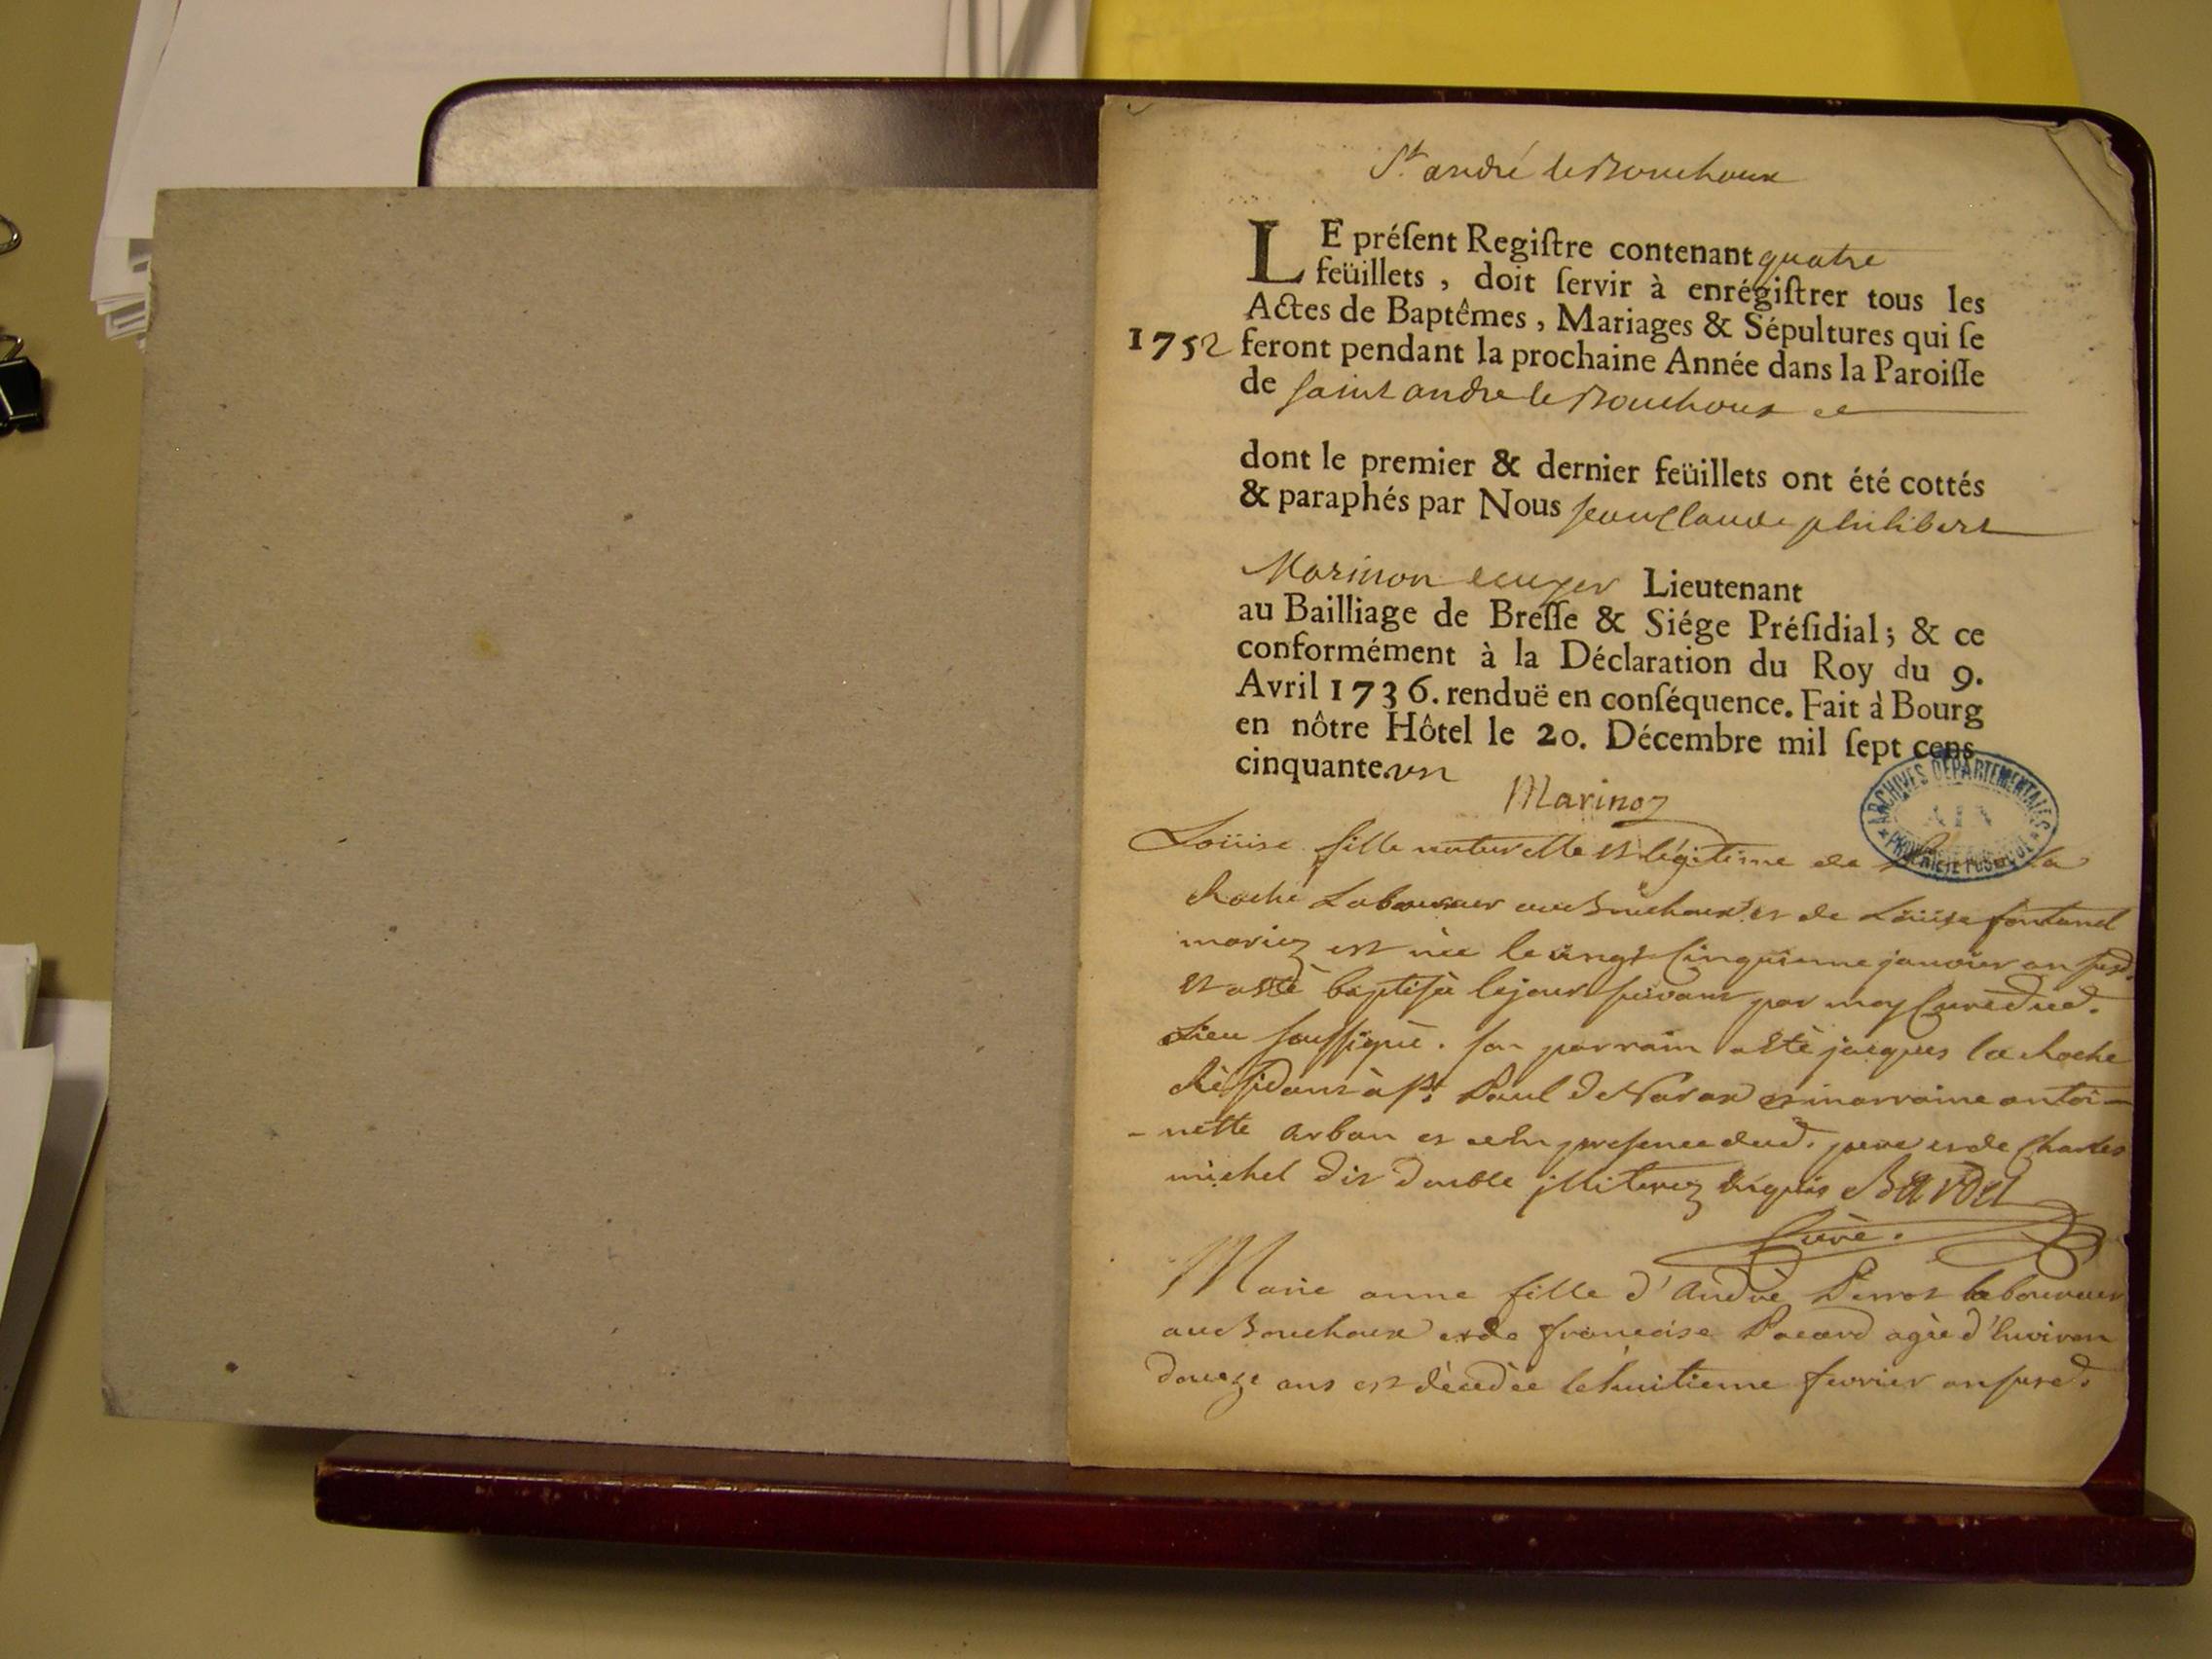 St. andré le Bouchoux
LE préſent Regiſtre contenant quatre
feüillets, doit ſervir à enrégiſtrer tous les
Actes de Baptêmes, Mariages & Sépultures qui ſe
1752 feront pendant la prochaine Année dans la Paroiſſe
de saint andre le Bouchoux
dont le premier & dernier feüillets ont été cottés
& paraphés par Nous Jean Claude philibert
Marinon ecuyer Lieutenant
au Bailliage de Breſſe & Siége Préſidial; & ce
conformément à la Déclaration du Roy du 9.
Avril 1736. renduë en conſéquence. Fait à Bourg
en nôtre Hôtel le 20. Décembre mil ſept cens
cinquante.un
Marinon
ARCHIVES DÉPARTEMENTALES
AIN
PROPRIÉTÉ PUBLIQUE
Loüise fille naturelle et légitime de la
Roche Laboureur au Bouchoux et de Loüise fontanel
mariez est née le vingt Cinquieme janvier an susd.
et a esté baptisée le jour suivant par moy Curé dud.
Lieu soussigné. son parrain a esté jacques la Roche
Résidant à St. Paul de Varax et marraine antoi-
-nette arban et ce en presence dud. pere et de Charles
michel dit Double illiterez enquis Bardel
Curé.
Marie anne fille d'André Perrot laboureur
au Bouchoux et de francoise Pacard agée d'Environ
douze ans est décedée le huitieme fevrier an susd.